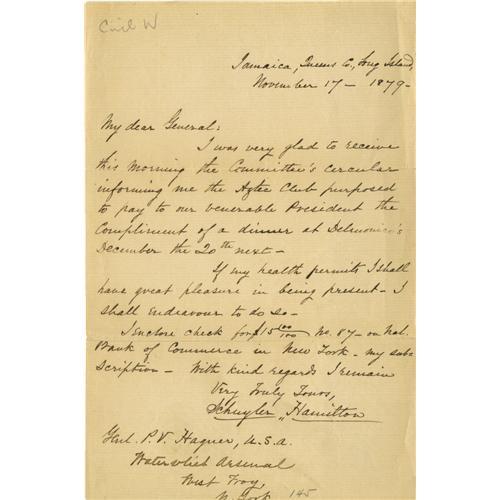 Civil W
Jamaica, Queens Co, Long Island,
November 17 - 1879 -
My dear General:
I was very glad to receive
this morning the Committee's circular
informing me the Aztec Club purposed
to pay to our venerable President the
Compliment of a dinner at Delmonico's
December the 20th next -
If my health permits I shall
have great pleasure in being present - I
shall endeavour to do so -
I enclose check for $15 00/100 No. 87 - on Nat.
Bank of Commerce in New York - my sub=
scription - With kind regards I remain
Very Truly Yours,
Schuyler Hamilton
Genl. P. V. Hagner, U.S.A.
Watervliet Arsenal
West Troy,
N. York 145